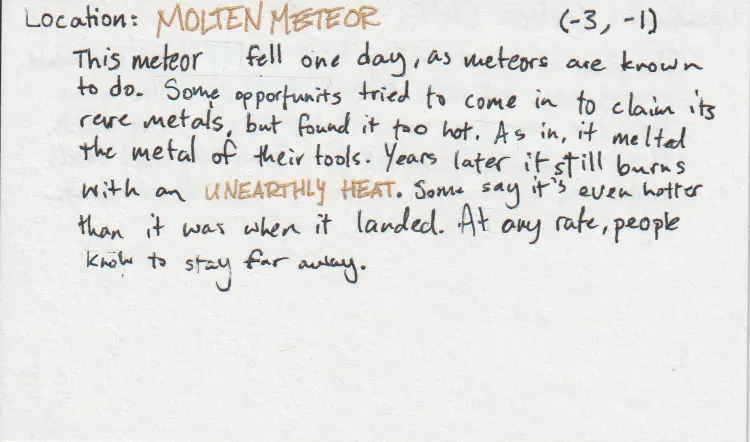 Location: MOLTEN METEOR (-3, -1)
This meteor fell one day, as meteors are known
to do. Some opportunits tried to come in to claim its
rare metals, but found it too hot. As in, it melted
the metal of their tools. Years later it still burns
with an UNEARTHLY HEAT. Some say it's even hotter
than it was when it landed. At any rate, people
know to stay far away.